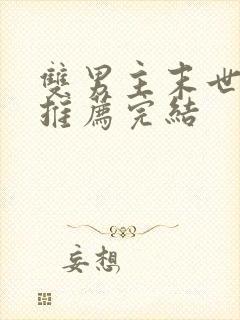 雙男主末世
推薦完結
妄想